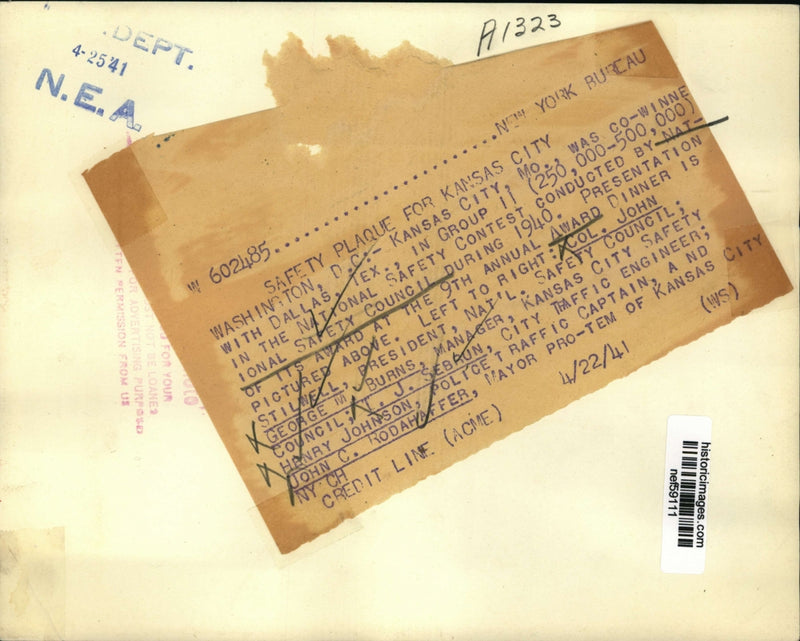 A1323
DEPT.
4-25-41
N.E.A.
NEW YORK BUREAU
W 602485
SAFETY PLAQUE FOR KANSAS CITY
WASHINGTON, D.C.- KANSAS CITY, MO., WAS CO-WINNE
WITH DALLAS, TEX., IN GROUP II (250,000-500,000)
IN THE NATIONAL SAFETY CONTEST CONDUCTED BY NAT-
IONAL SAFETY COUNCIL DURING 1940. PRESENTATION
OF AWARD AT THE 9TH ANNUAL AWARD DINNER IS
PICTURED ABOVE. LEFT TO RIGHT: COL. JOHN
STILWELL, PRESIDENT, NAT'L. SAFETY COUNCIL;
GEORGE M. BURNS, MANAGER, KANSAS CITY SAFETY
COUNCIL; J. CITY TRAFFIC ENGINEER;
HENRY JOHNSON, POLICE TRAFFIC CAPTAIN, A ND
JOHN C. RODAHAFFER, MAYOR PRO-TEM OF KANSAS CITY
NY CH
CREDIT LINE (ACME) 4/22/41 (WS)
FOR YOUR
NOT BE LOANED
FOR ADVERTISING PURPOSES
TEN PERMISSION FROM US
historicimages.com
nef59111